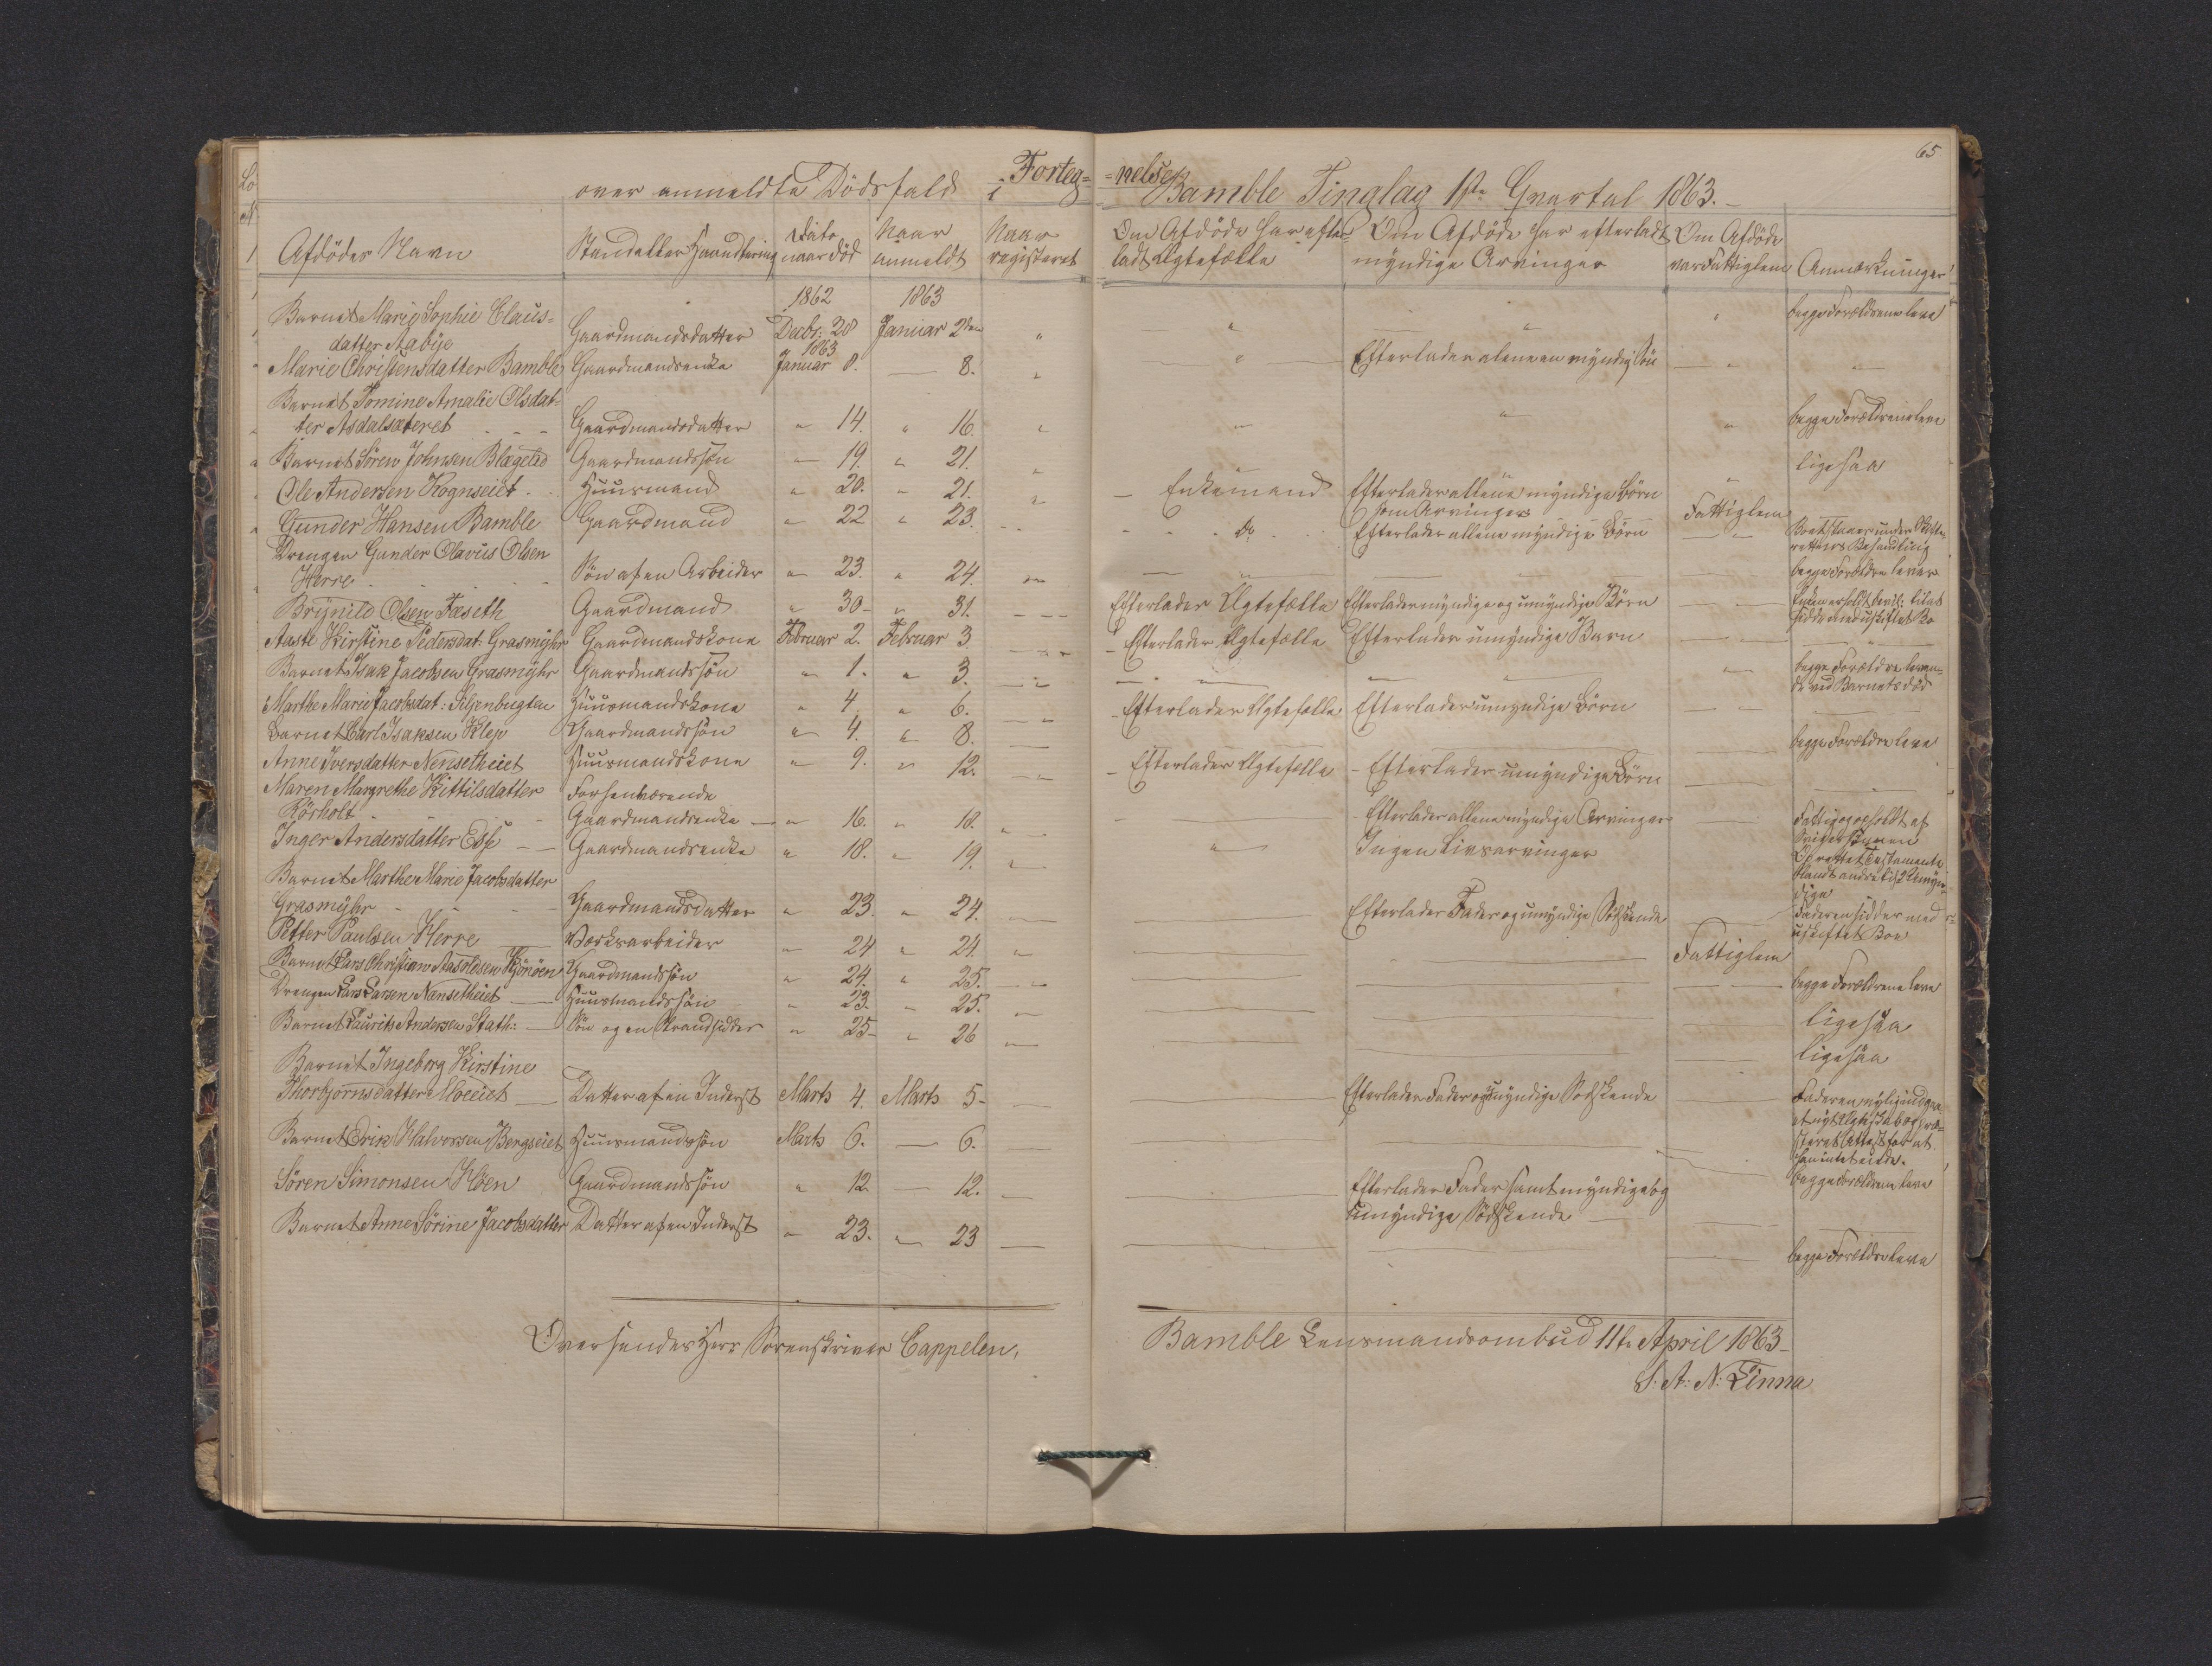 65
Forteg= =nelse
over anmeldte Dödsfald i Bamble Tinglag 1ste Qvartal 1863.
Afdödes Navn | Stand eller Haandtering | Dato naar död | Naar anmeldt | Naar registeret | Om Afdöde har efterladt Ægtefælle | Om Afdöde har efterladt myndige Arvinger | Om Afdöde var Fattiglem | Anmærkninger
1862 1863
Barnet Marie Sophie Claus-
datter Aabye Gaardmandsdatter Decbr: 28 Januar 2den " " " " begge Forældrene leve
1863
Marie Christensdatter Bamble Gaardmandsenke Januar 8. — 8. " " Efterlader alene en myndig Sön " "
Barnet Tomine Amalie Olsdat-
ter Asdalsæteret Gaardmandsdatter " 14. " 16. " " " " begge Forældrene leve
Barnet Sören Johnsen Blægstad Gaardmandssön " 19. " 21. " ligesaa
Ole Andersen Kognseiet Huusmand " 20. " 21. " Enkemand Efterlader allene myndige Börn
som Arvinger Fattiglem
Gunder Hansen Bamble Gaardmand " 22 " 23. Do Efterlader allene myndige Börn Boet staaer under Skifte-
rettens Behandling
Drengen Gunder Olavus Olsen
Herre Sön af en Arbeider " 23. " 24. begge Forældre lever
Brynild Olsen Fæseth Gaardmand " 30- " 31. Efterlader Ægtefælle Efterlader myndige og umyndige Börn Enken erholdt bevil: til at
sidde med uskiftet Bo
Aaste Kirstine Pedersdat. Grasmyhr Gaardmandskone Februar 2. Februar 3 Efterlader Ægtefælle Efterlader umyndige Barn
Barnet Isak Jacobsen Grasmyhr Gaardmandssön " 1. " 3. begge Forældre leven-
de ved Barnets död
Marthe Marie Jacobsdat: Siljenbugten Huusmandskone " 4 " 6. Efterlader Ægtefælle Efterlader umyndige Börn
Barnet Carl Isaksen Klep Gaardmandssön " 4. " 8. begge Forældre leve
Anne Iversdatter Nensetheiet Huusmandskone " 9. " 12. Efterlader Ægtefælle Efterlader umyndige Börn
Maren Margrethe Kittilsdatter Forhenværende
Rörholt Gaardmandsenke " 16. " 18. Efterlader allene myndige Arvinger Fattig og forholdt af
Inger Andersdatter Gaardmandsenke " 18. " 19. " Ingen Livsarvinger Oprettet Testamente
blandt andre til 2 Umyn-
dige
Barnet Marthe Marie Jacobsdatter
Grasmyhr Gaardmandsdatter " 23. " 24. Efterlader Fader og umyndige Södskende Faderen sidder med
uskiftet Boe
Petter Paulsen Herre Værksarbeider " 24 " 24. Fattiglem
Barnet Lars Christian Aasoldsen Gaardmandssön " 24. " 25. begge Forældrene leve
Drengen Lars Larsen Nensetheiet Huusmandssön " 23. " 25. ligesaa
Barnet Laurits Andersen Stath: Sön og en Strandsidder " 25- " 26 ligesaa
Barnet Ingeborg Kirstine
Thorbjörnsdatter Moeeiet Datter af en Inderst Marts 4. Marts 5- Efterlader Fader og umyndige Södskende Faderen nylig indgaa-
et nyt Ægteskab og præ-
steret Attest for at
han intet eiede.
Barnet Erik Halvorsen Bergseiet Huusmandssön Marts 6. — 6.
Sören Simonsen Hoen Gaardmandssön " 12. — 12. Efterlader Fader samt myndige og
umyndige Södskende begge Forældrene leve
Barnet Anne Sörine Jacobsdatter Datter af en Inderst " 23. " 23 begge Forældre leve
Oversendes Herr Sorenskriver Cappelen.
Bamble Lensmandsombud 11te April 1863
S. A: N: Linna